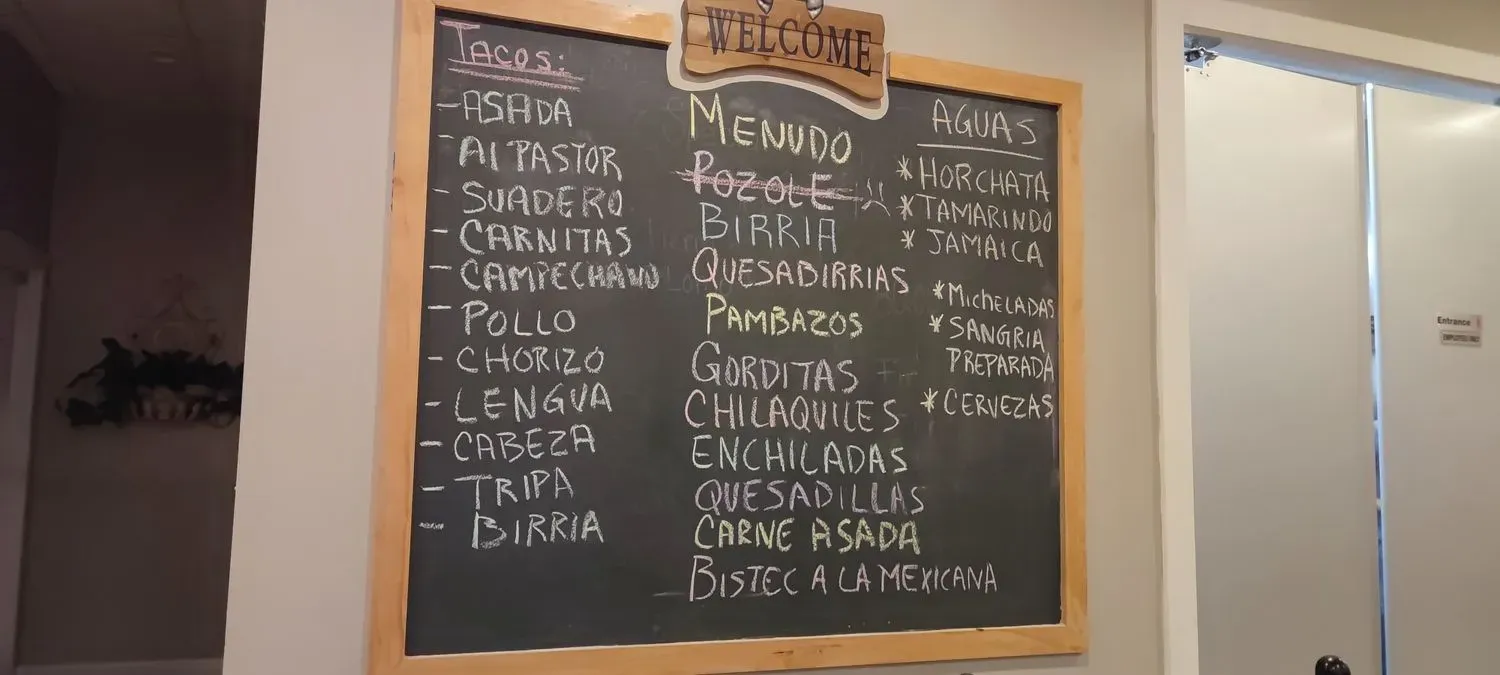 WELCOME
Tacos:
-ASADA
- Al PASTOR
- SUADERO
- CARNITAS
- CAMPECHANO
- POLLO
- CHORIZO
- LENGUA
- CABEZA
- TRIPA
- BIRRIA
MENUDO
POZOLE
BIRRIA
QUESABIRRIAS
PAMBAZOS
GORDITAS
CHILAQUILES
ENCHILADAS
QUESADILLAS
CARNE ASADA
BISTEC A LA MEXICANA
AGUAS
*HORCHATA
*TAMARINDO
* JAMAICA
*MICHELADAS
*SANGRIA
PREPARADA
*CERVEZAS
Entrance
EMPLOYEES ONLY